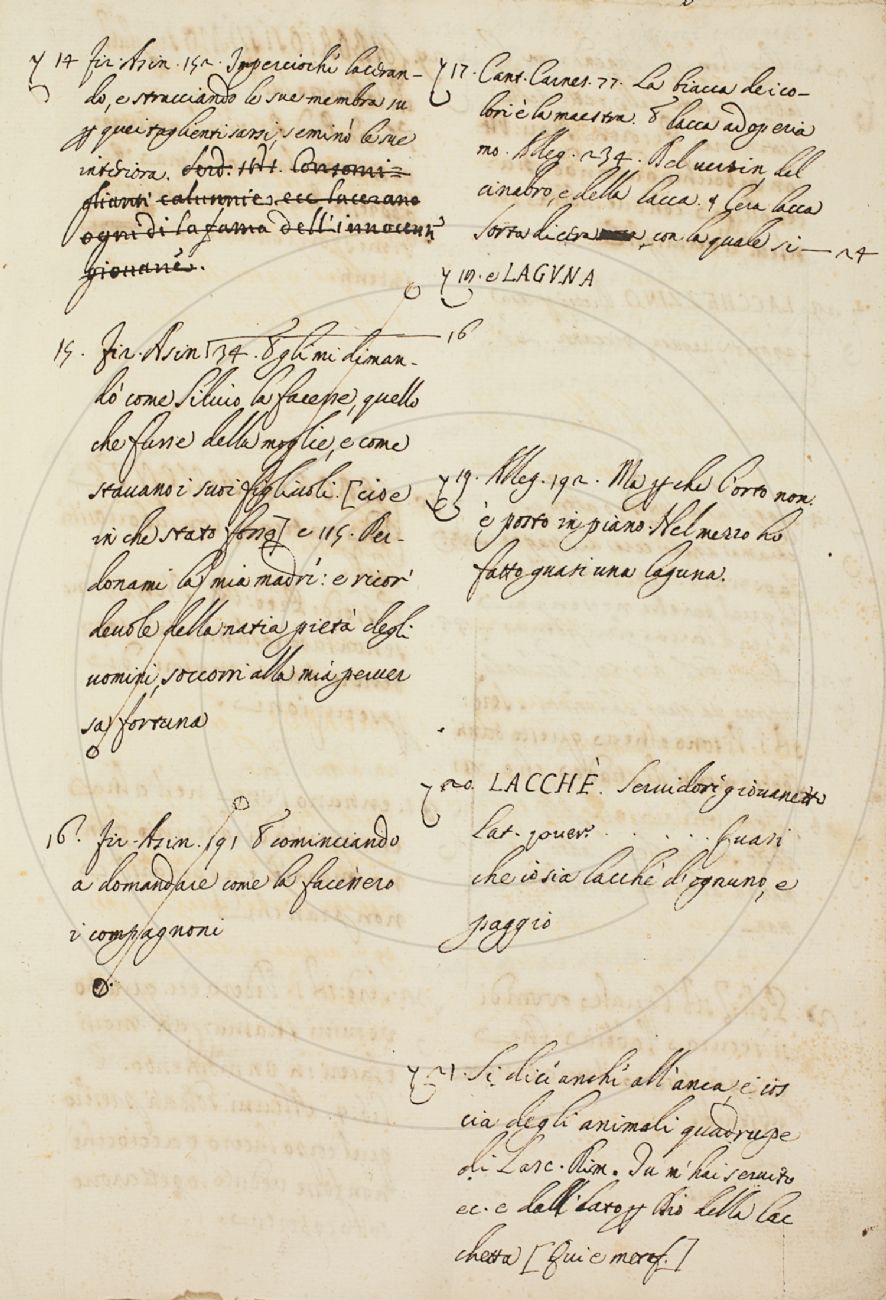 14 Fir. Asin. 152. Imperciochè laceran-
do, e stracciando le sue membra su
quei taglienti sassi, seminò le sue
interiora.
glianti calunnie ecc. lacerano
ogni dì la fama dell'innocente
giovane.
15. Fir. Asin. 34. Egli mi diman-
dò come Silvio la facesse, quello
che fusse della moglie, e come
stavano i suoi figliuoli. [cioè
in che stato fosse] e 115. Per-
donami la mia madre: e ricor
devole della natia pietà degli
uomini, soccorri alla mia perver
sa fortuna
16. Fir. Asin. 191 E cominciando
a domandare come la facessero
i compagnoni
17. Cant. Carnes. 77. La biacca de i co-
lori è la maestra. E lacca adoperia
mo. Alleg. 234. Del verzin, del
cinabro, e della lacca. Cera lacca
Sorta di cera, con la quale si — 24
18. e LAGVNA
16
19. Alleg. 192. Ma che l'orto non
è posto in piano. Nel mezzo ho
fatto quasi una laguna.
20. LACCHÈ. Servidore giovanetto
Lat. . . . . . Quasi
che io sia lacchè d'ognuno, e
paggio
21. Si dice anche all'anca, e cos
cia degli animali quadrupe
di Lasc. Rim. Tu m'hai servito
ec. e dall'lato Dio della lac
chetta [Qui e metaf.]